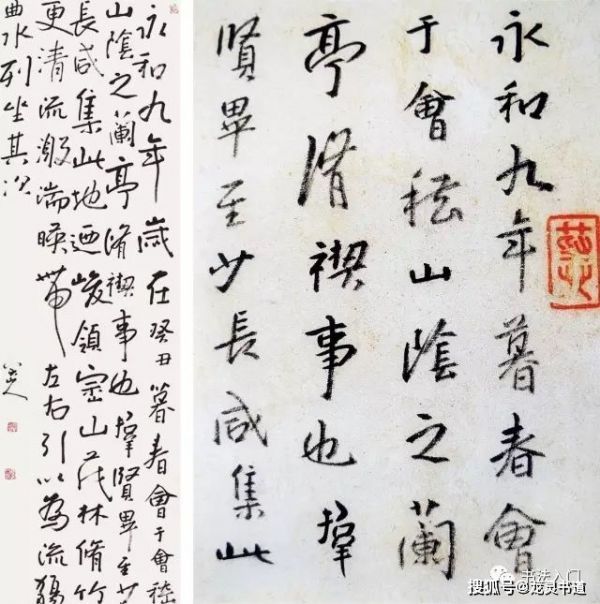 永和九年暮春會
于會稽山陰之蘭
亭脩禊事也羣
賢畢至少長咸集此
永和九年歲在癸丑暮春會于會稽
山陰之蘭亭脩禊事也羣賢畢至少
長咸集此地迺峻領崇山茂林脩竹
更清流激湍暎帶左右引以為流觴
曲水列坐其次
八大山人
书法入门
搜狐号@龙灵书道